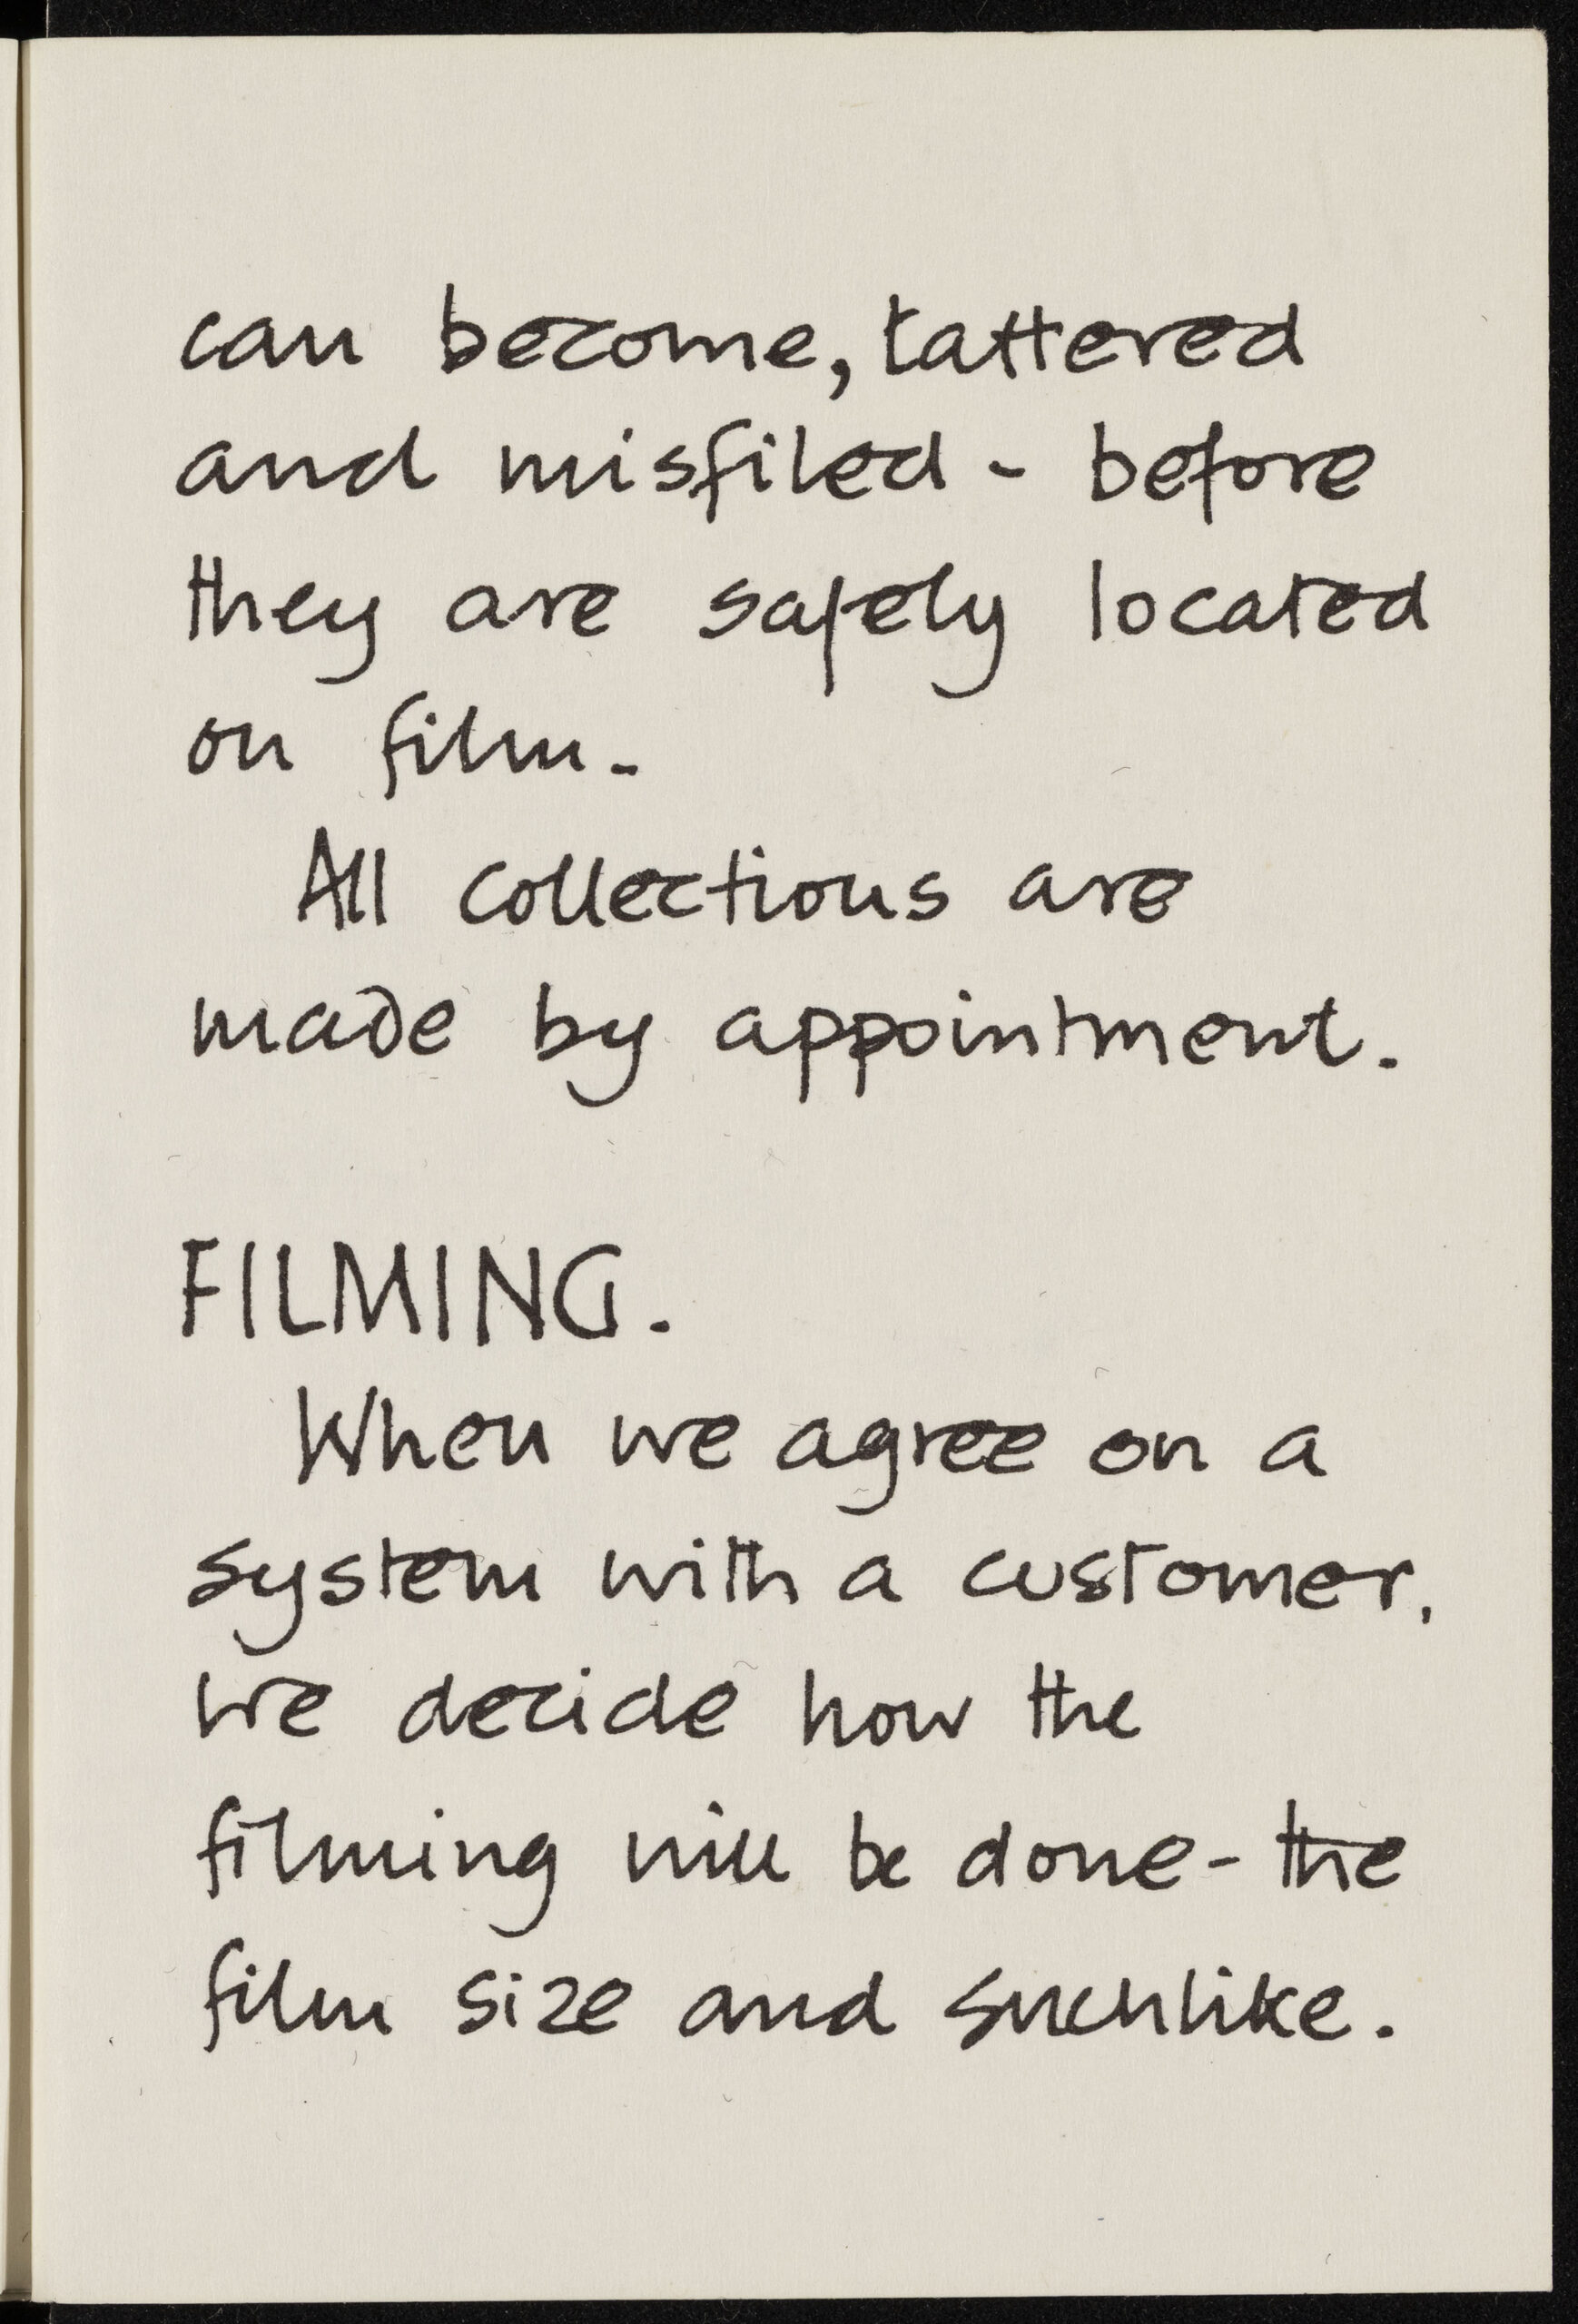 can become, tattered
and misfiled - before
they are safely located
on film.
All collections are
made by appointment.
FILMING.
When we agree on a
system with a customer,
we decide how the
filming will be done - the
film size and suchlike.